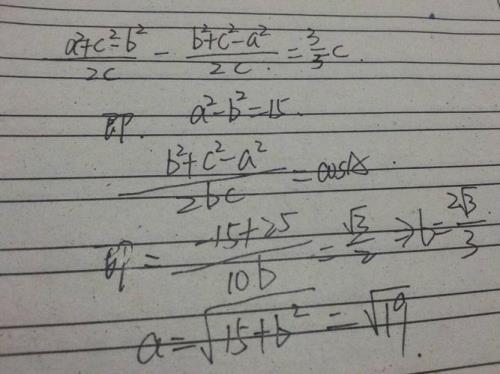 (a²+c²-b²)/(2c) - (b²+c²-a²)/(2c) = 3/3 c
即. a²-b²=15.
(b²+c²-a²)/(2bc) = cosA.
即 = (-15+25)/(10b) = √3/2 ⇒ b = 2√3/3
a = √(15+b²) = √19.